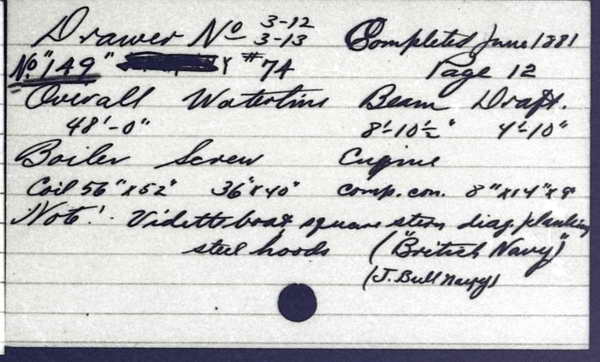 Drawer No 3-12
3-13 Completed June 1881
No. "149" #74 Page 12
Overall Waterline Beam Draft.
48'-0" 8'-10½" 4'-10"
Boiler Screw Engine
Coil 56"x52" 36"x40" Comp. con. 8"x14"x9"
Note! Vidette boat square stern diag. planking
steel hoods ("British Navy")
(J. Bull Navy)